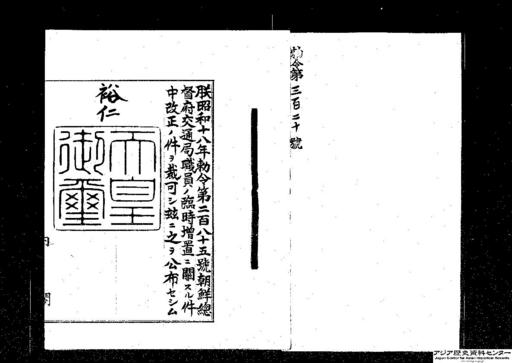 勅令第三百二十號
朕昭和十八年勅令第二百八十五號朝鮮總
督府交通局職員ノ臨時增置ニ關スル件
中改正ノ件ヲ裁可シ玆ニ之ヲ公布セシム
裕仁
天皇
御璽
内
閣
アジア歴史資料センター
Japan Center for Asian Historical Records